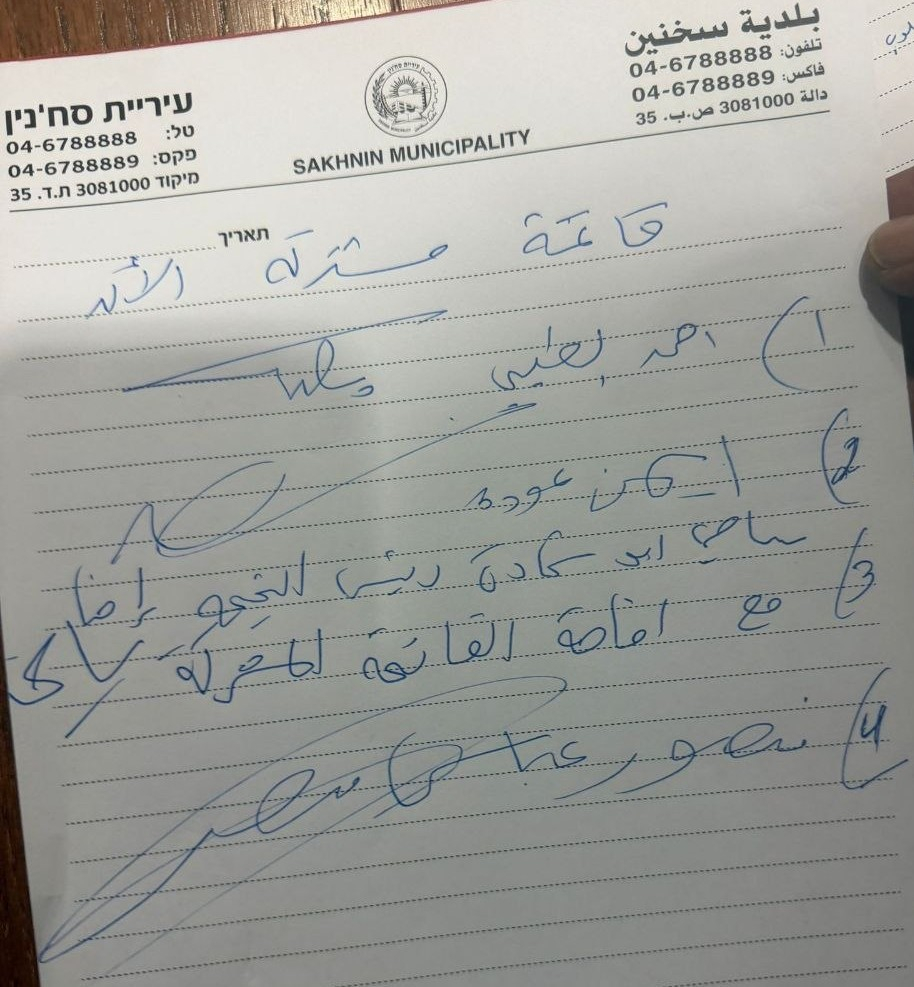 עיריית סח'נין
טל: 04-6788888
פקס: 04-6788889
מיקוד 3081000 ת.ד. 35
SAKHNIN MUNICIPALITY
بلدية سخنين
تلفون: 04-6788888
فاكس: 04-6788889
دالة 3081000 ص.ب. 35
תאריך
قائمة مشتركة الآن
1) احمد الطيبي
2) ايمن عودة
3) سامي ابو شحادة رئيس التجمع إمضا
مع اقامة القائمة المشتركة
4) منصور عباس